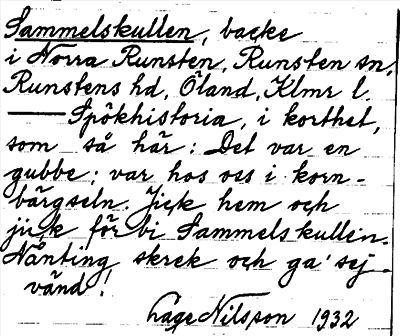 Sammelskullen, backe
i Norra Runsten, Runsten sn,
Runstens hd, Öland, Klmr l.
— Spökhistoria, i korthet,
som så här: Det var en
gubbe; var hos oss i korn-
bärgseln. Jick hem och
jick för bi Sammelskullen.
Nånting skrek och ga' sej
vänd!
Lage Nilsson 1932